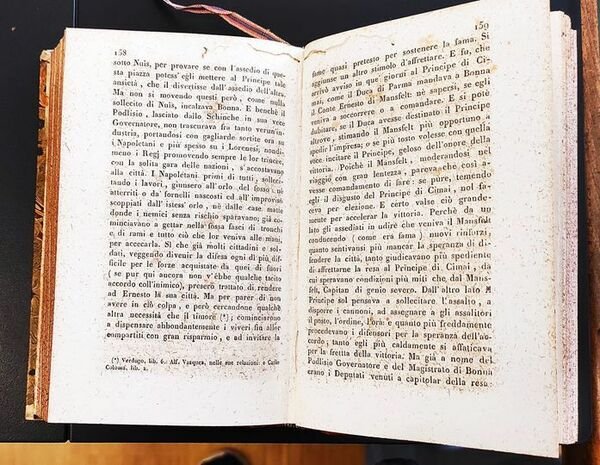 158
sotto Nuis, per provare se con l'assedio di que-
sta piazza potess'egli mettere al Principe tale
ansietà, che il divertisse dall'assedio dell'altra.
Ma non si movendo questi però, come nulla
sollecito di Nuis, incalzava Bonna. E benchè il
Podlisio, lasciato dallo Schinche in sua vece
Governatore, non trascurava fra tanto verun'in-
dustria, portandosi con gagliarde sortite ora su
i Napoletani e più spesso su i Lorenesi, nondi-
meno i Regj promovendo sempre le lor trincee,
con la solita gara delle nazioni, s'accostavano
alla città. I Napoletani primi di tutti, sollec-
tando i lavori, giunsero all'orlo del fosso: nè
atterriti o da' fornelli nascosti ed all'improviso
scoppiati dall'istess'orlo, nè dalle case matte
donde i nemici senza rischio sparavano; già co-
minciavano a gettar nella fossa fasci di tronchi
e, di rami e tutto ciò che lor veniva alle mani,
per accecarla. Sì che già molti cittadini e sol-
dati, veggendo divenir la difesa ogni dì più dif-
ficile per le forze acquistate da quei di fuori
( se pur quì ancora non v'ebbe qualche tacito
accordo coll'inimico), preser trattato di rendere
ad Ernesto la sua città. Ma per parer di non
avere in ciò colpa, e però cercandone qualche
altra necessità che il timore (*); cominciarono
a dispensare abbondantemente i viveri fin allor
compartiti con gran risparmio, e ad invitare la
(*) Verdugo, lib. 6. Alf. Vasquez, nelle sue relazioni: e Carlo
Coloma, lib. 2.
159
fame quasi pretesto per sostenere la fama. Si
aggiunse un altro stimolo d'affrettare. E fu, che
arrivò avviso in que' giorni al Principe di Ci-
mai, come il Duca di Parma mandava a Bonna
il Conte Ernesto di Mansfelt: nè sapersi, se egli
veniva a soccorrere o a comandare. E si potè
dubitare, se il Duca avesse destinato il Principe
altrove, stimando il Mansfelt più opportuno a
spedir l'impresa; o se più tosto volesse con quella
voce incitare il Principe, geloso dell'onore della
vittoria. Poichè il Mansfelt, moderandosi nel
viaggio con gran lentezza, pareva che così a-
vesse comandamento di fare: se pure, temendo
egli il disgusto del Principe di Cimai, nol fa-
ceva per elezione. E certo valse ciò grande-
mente per accelerar la vittoria. Perchè da un
lato gli assediati in udire che veniva il Mansfelt
conducendo ( come era fama ) nuovi rinforzi,
quanto sentivansi più mancar la speranza di di-
fendere la città, tanto giudicavano più spediente
di affrettarne la resa al Principe di Cimai, da
cui speravano condizioni più miti che dal Mans-
felt, Capitan di genio severo. Dall'altro lato il
Principe sol pensava a sollecitare l'assalto, a
disporre i cannoni, ad assegnare a gli assalitori
il posto, l'ordine, l'ora: e quanto più freddamente
procedevano i difensori per la speranza dell'ac-
cordo, tanto egli più caldamente si affaticava
per la fretta della vittoria. Ma già a nome del
Podlisio Governatore e del Magistrato di Bonna
erano i Deputati venuti a capitolar della resa: